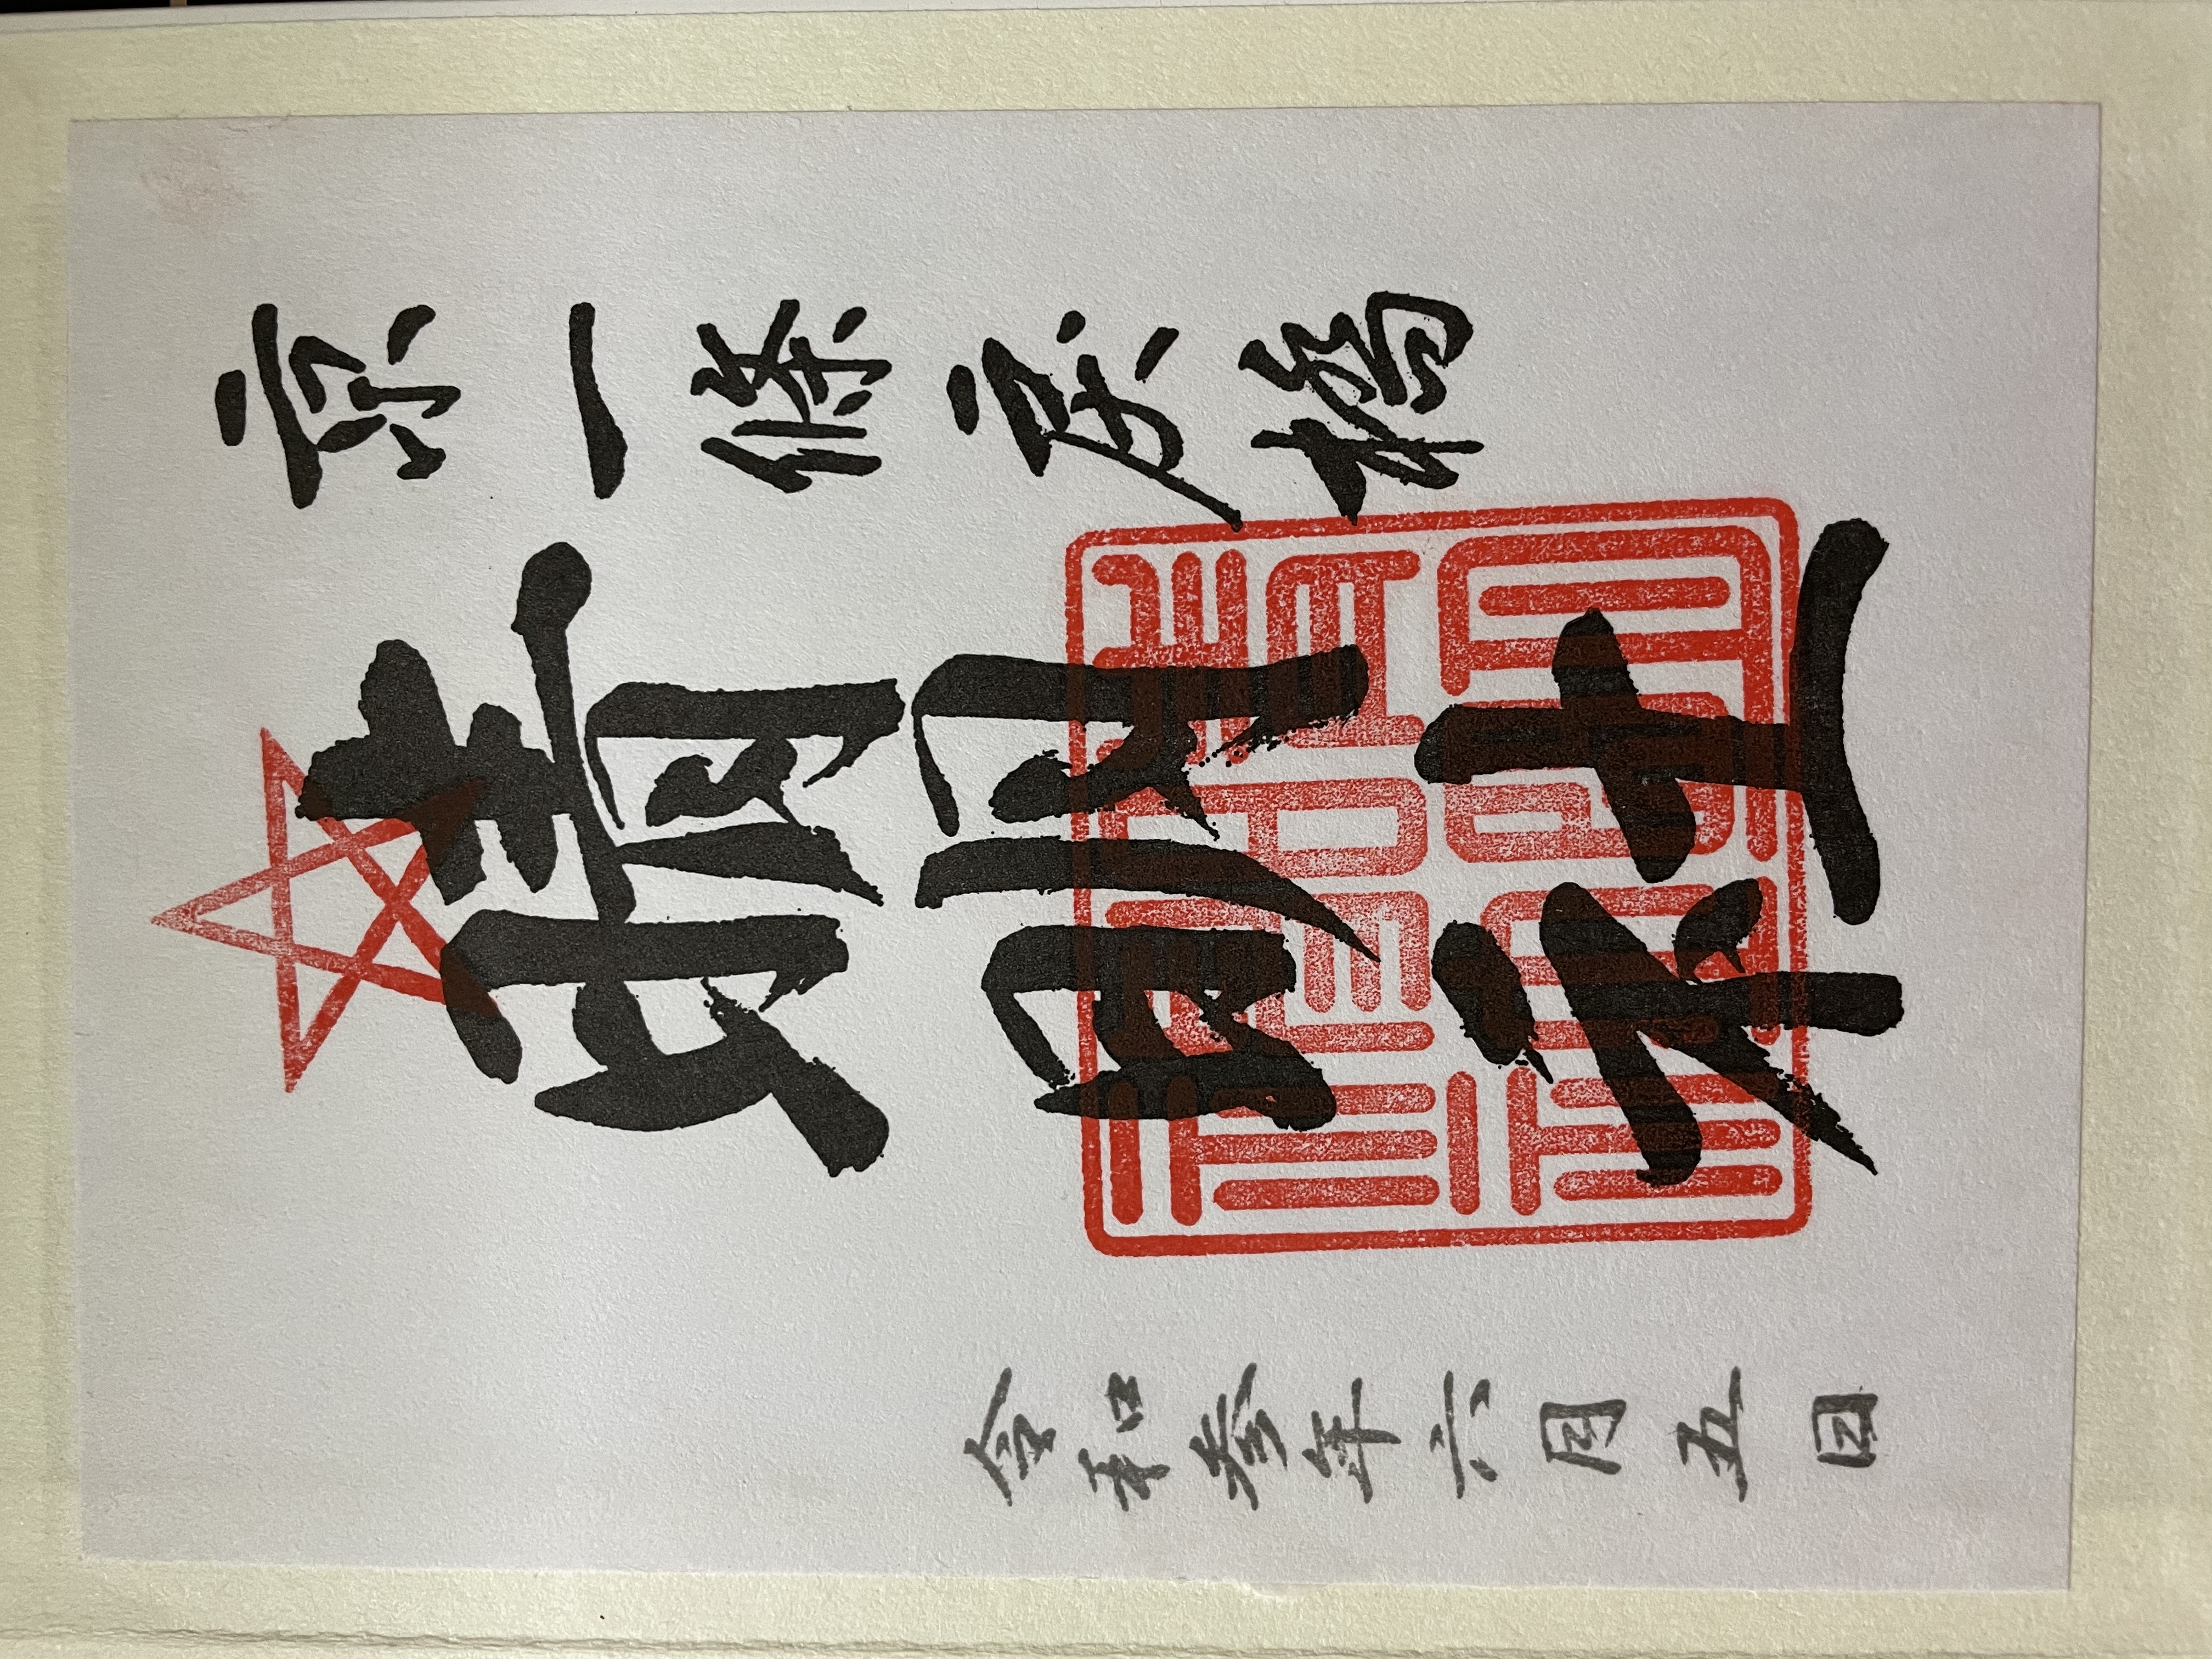 京一條戻橋
晴明神社
令和参年六月五日